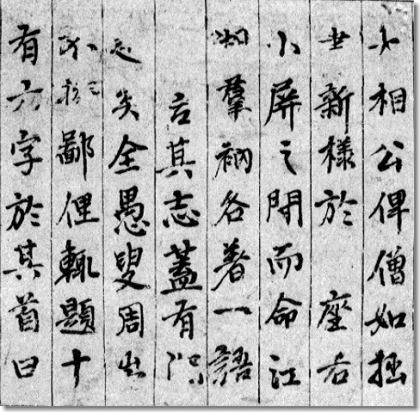 大相公俾僧如拙
畫新樣於座右
小屏之間而命江
湖羣衲各著一語
言其志蓋有深
矣全愚叟周崇
不鄙俚輒題十
有六字於其首曰